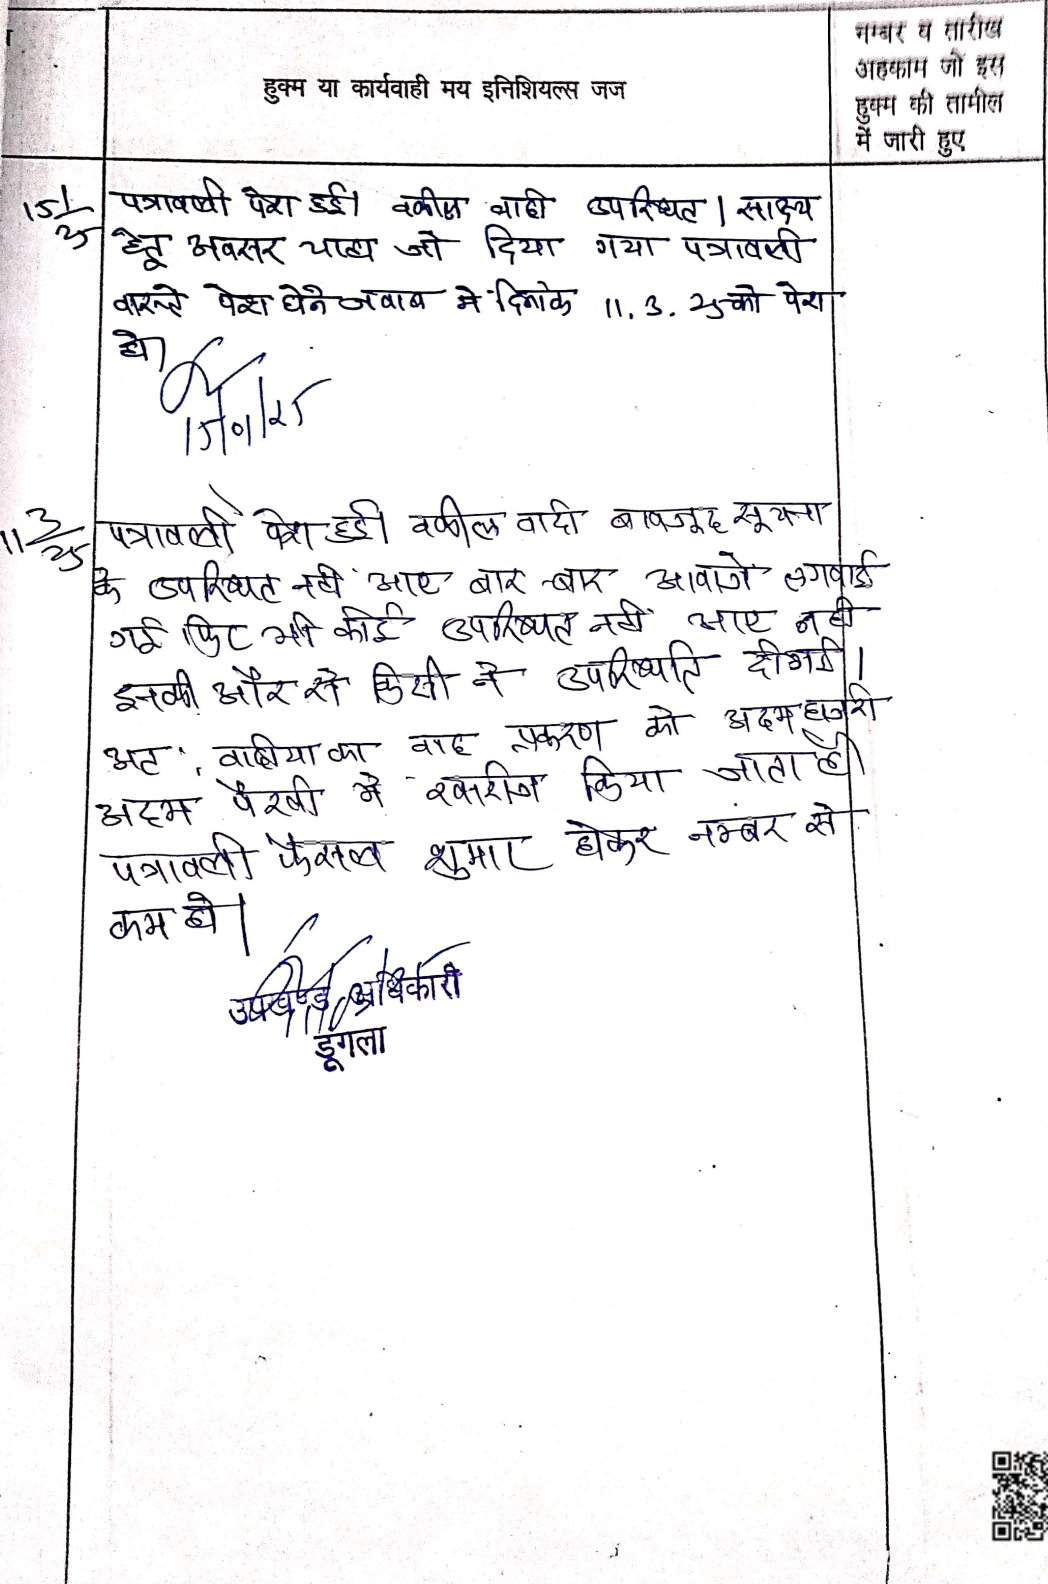 हुक्म या कार्यवाही मय इनिशियल्स जज
नम्बर व तारीख
अहकाम जो इस
हुक्म की तामील
में जारी हुए
15/1/25
पत्रावली पेश हुई। वकील वादी उपस्थित। साक्ष्य
हेतू अवसर चाहा जो दिया गया पत्रावली
वास्ते पेश होने जवाब मे दिनांक 11.3.25 को पेश
हो।
15/01/25
11/3/25
पत्रावली पेश हुई। वकील वादी बावजूद सूचना
के उपस्थित नही आए बार-बार आवाजे लगवाई
गई फिर भी कोई उपस्थित नही आए न ही
इनकी और से किसी ने उपस्थिति दी गई।
अत: वादीया का वाद प्रकरण को अदम हाजरी
अदम पैरवी मे खारीज किया जाता है।
पत्रावली फैसल शुमार होकर नम्बर से
कम हो।
उपखण्ड अधिकारी
डूंगला